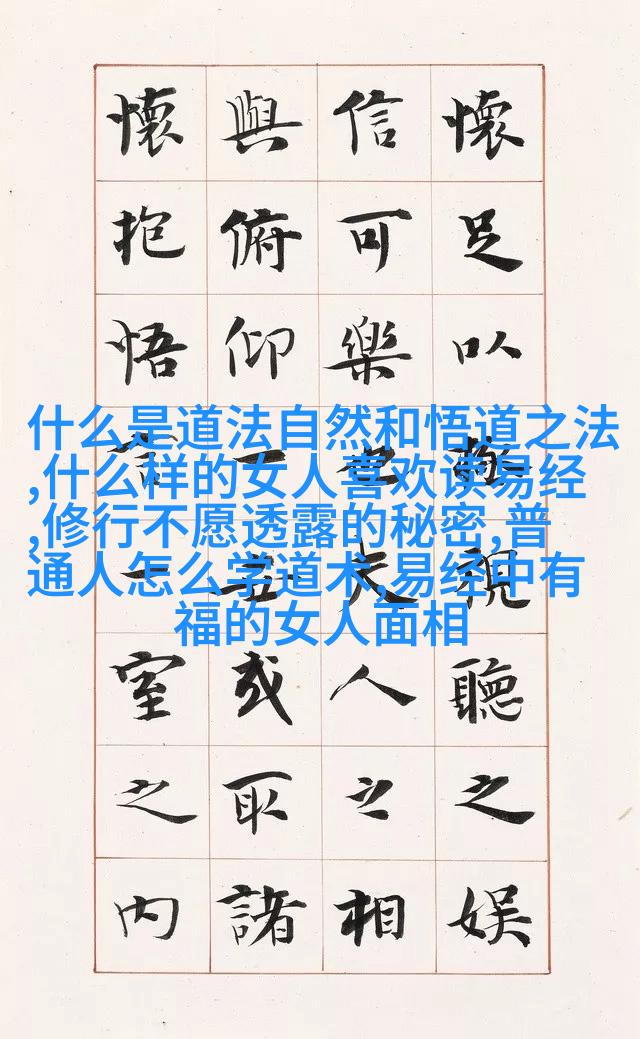 懷足以極視聽之娱
信可樂也夫人之相
與俯仰一世或取諸
懷抱悟言一室之内
什么是道法自然和悟道之法
,什么样的女人喜欢读易经
,修行不愿透露的秘密,普
通人怎么学道术,易经中有
福的女人面相